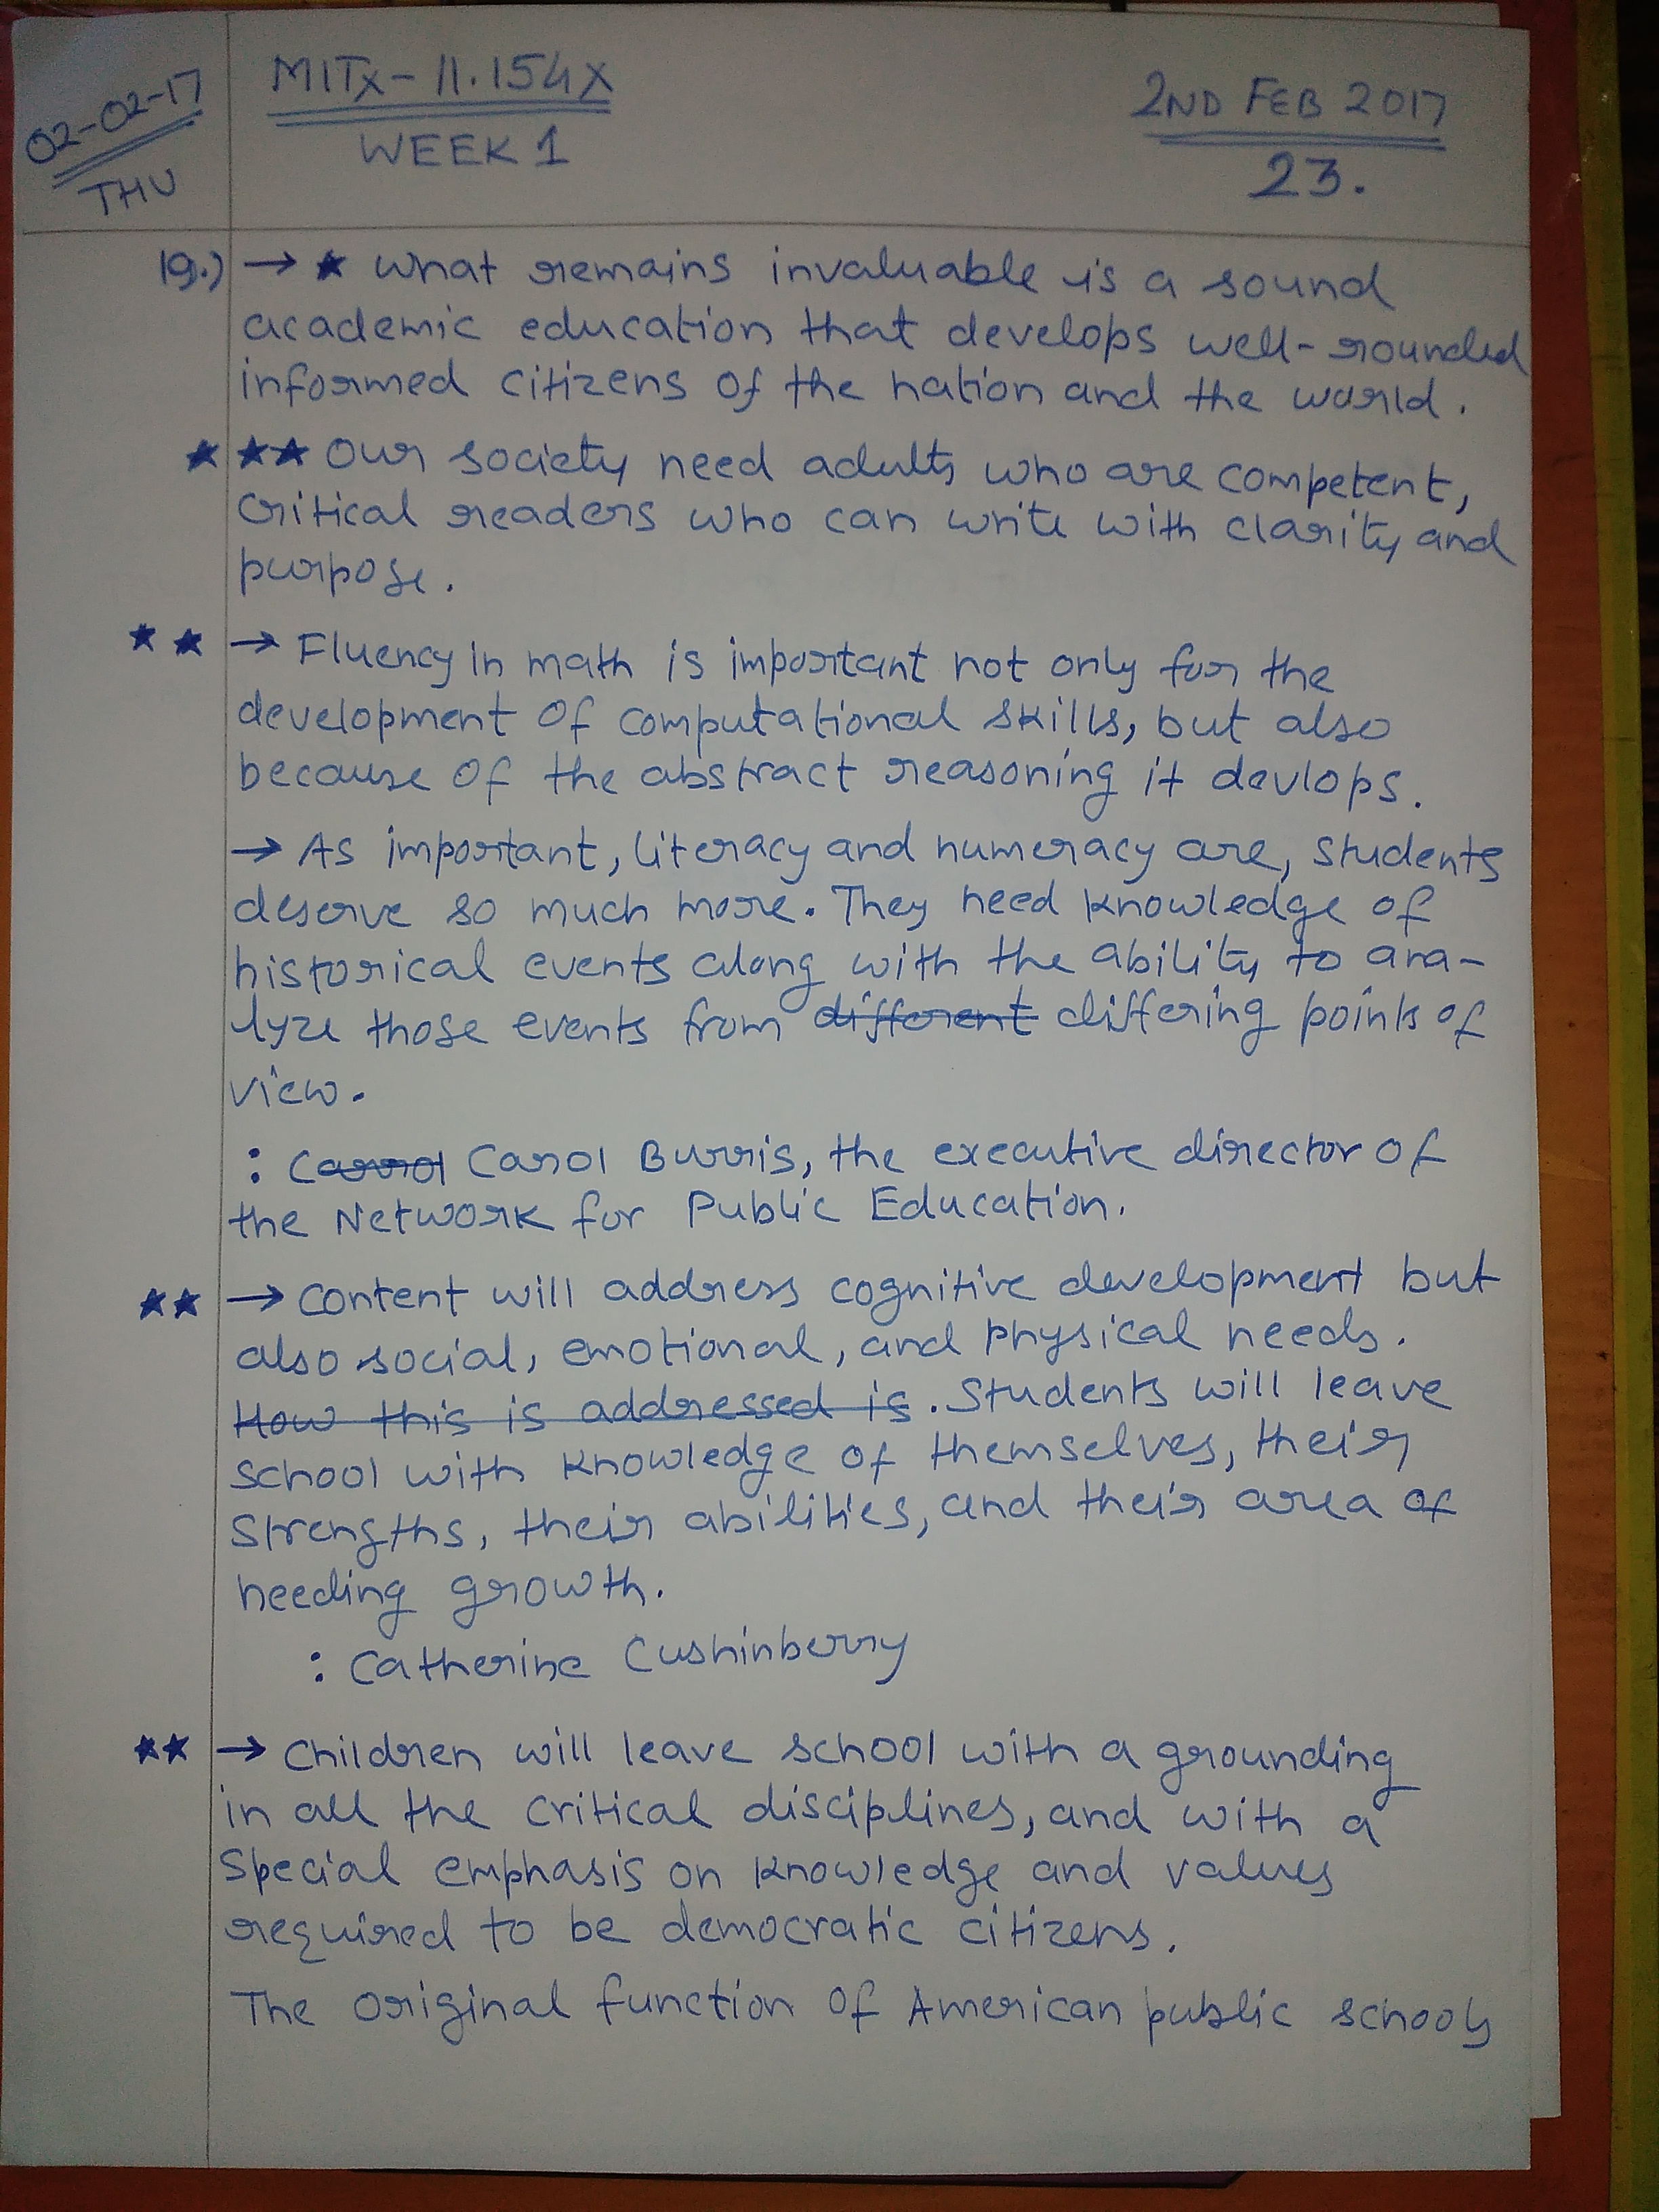 02-02-17
THU
MITx - 11.154x
WEEK 1
2ND FEB 2017
23.
19.) → ★ What remains invaluable is a sound
academic education that develops well-rounded
informed citizens of the nation and the world.
★ ★★ Our society need adults who are competent,
critical readers who can write with clarity and
purpose.
★ ★ → Fluency in math is important not only for the
development of computational skills, but also
because of the abstract reasoning it devlops.
→ As important, literacy and numeracy are, students
deserve so much more. They need knowledge of
historical events along with the ability to ana-
lyze those events from different differing points of
view.
: Carrol Carol Burris, the executive director of
the Network for Public Education.
★★ → Content will address cognitive development but
also social, emotional, and physical needs.
How this is addressed is. Students will leave
school with knowledge of themselves, their
strengths, their abilities, and their area of
needing growth.
: Catherine Cushinberry
★★ → Children will leave school with a grounding
in all the critical disciplines, and with a
special emphasis on knowledge and values
required to be democratic citizens.
The original function of American public schools